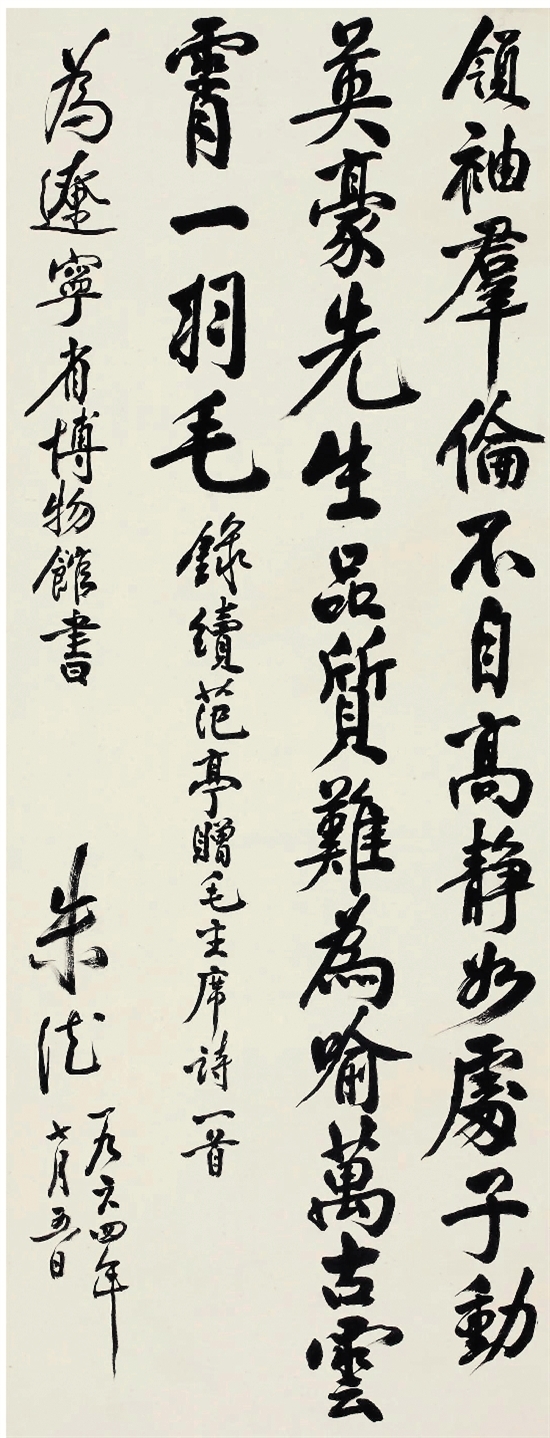 領袖羣倫不自高静如處子動
英豪先生品質難為喻萬古雲
霄一羽毛 錄續范亭贈毛主席詩一首
為遼寧省博物館書
朱德 一九六四年
七月五日